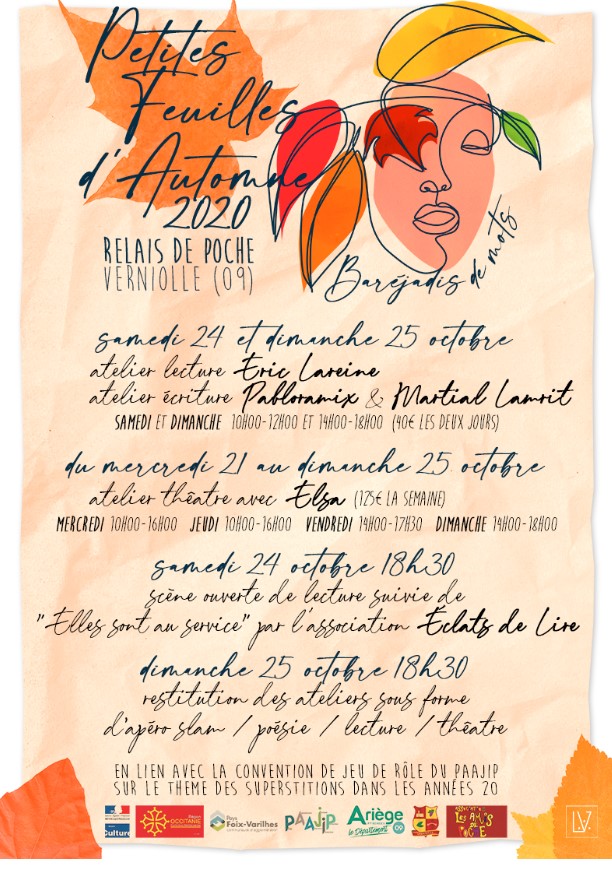 Petites
Feuilles
d'Automne
2020
RELAIS DE POCHE
VERNIOLLE (09)
Baréjadis de mots
samedi 24 et dimanche 25 octobre
atelier lecture Eric Lareine
atelier écriture Pabloramix & Martial Lamrit
SAMEDI ET DIMANCHE 10H00-12H00 ET 14H00-18H00 (40€ LES DEUX JOURS)
du mercredi 21 au dimanche 25 octobre
atelier théatre avec Elsa (125€ LA SEMAINE)
MERCREDI 10H00-16H00 JEUDI 10H00-16H00 VENDREDI 14H00-17H30 DIMANCHE 14H00-18H00
samedi 24 octobre 18h30
scène ouverte de lecture suivie de
"Elles sont au service" par l'association Éclats de Lire
dimanche 25 octobre 18h30
restitution des ateliers sous forme
d'apéro slam / poésie / lecture / théatre
EN LIEN AVEC LA CONVENTION DE JEU DE RÔLE DU PAAJIP
SUR LE THEME DES SUPERSTITIONS DANS LES ANNÉES 20
Culture
OCCITANIE
Pays
Foix-Varilhes
PAAJIP
Ariège
le Département 09
LES AMIS DE POCHE